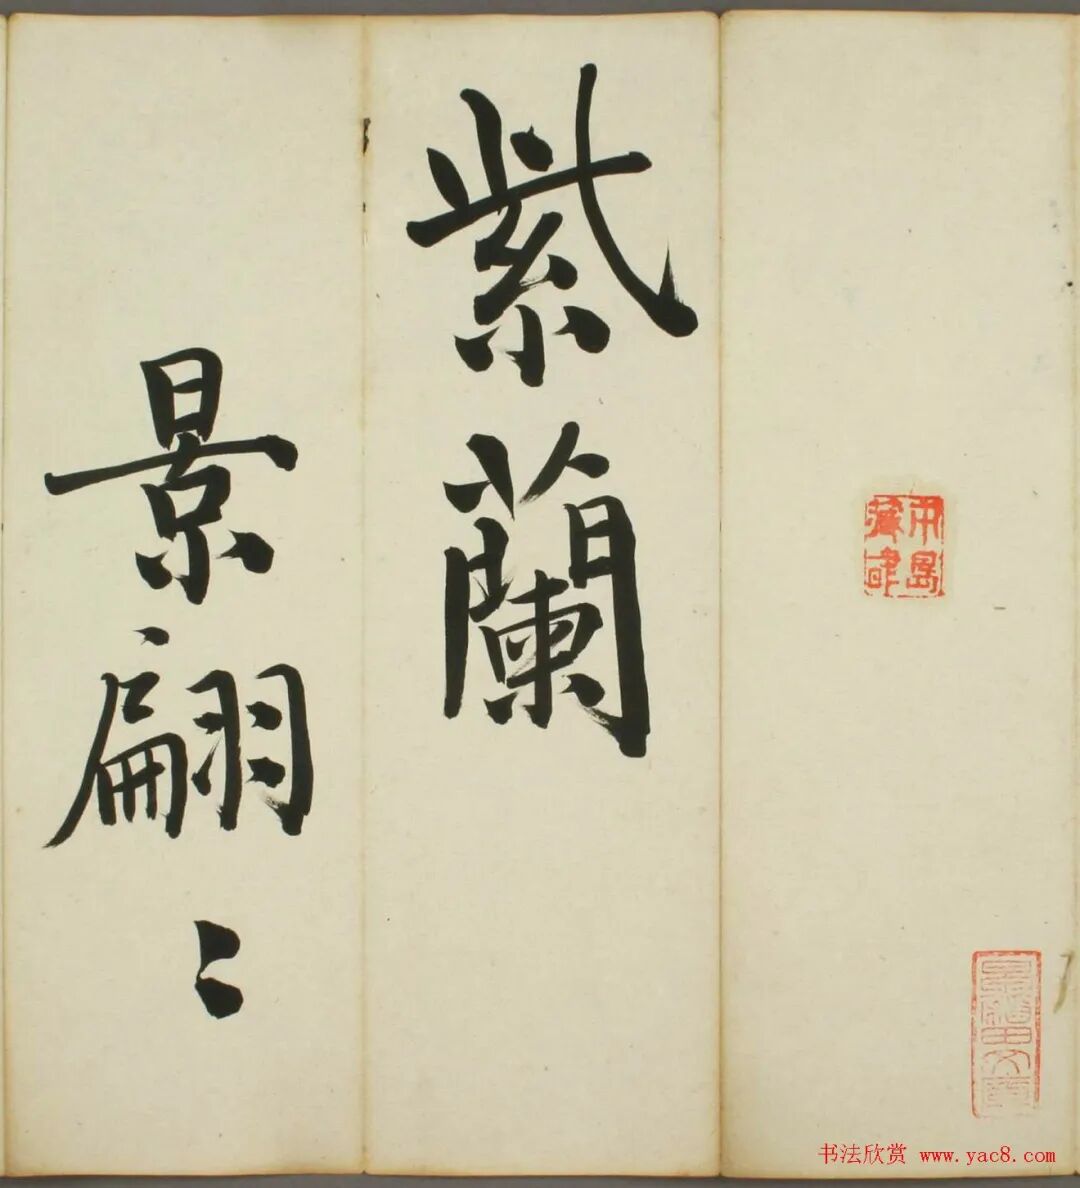 紫蘭
景翩〻
书法欣赏 www.yac8.com